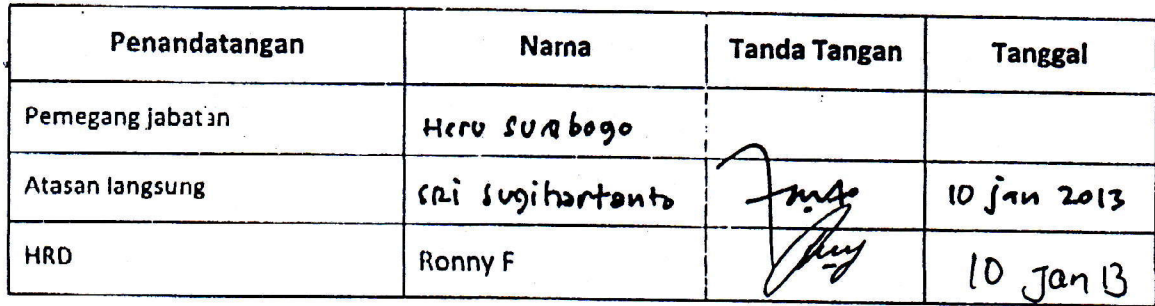 Penandatangan Nama Tanda Tangan Tanggal
Pemegang jabatan Heru Surbogo
Atasan langsung Sri Sugihartanto 10 jan 2013
HRD Ronny F 10 Jan 13